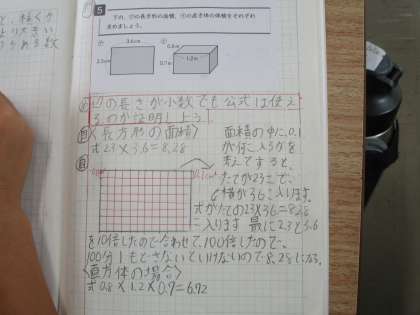 5
下の、㋐の長方形の面積、㋑の直方体の体積をそれぞれ
求めましょう。
3.6cm
0.8m
1.2m
0.7m
の長さが小数でも公式は使え
るのか証明しよう
〈長方形の面積〉
式2.3×3.6=8.28
面積の中に、0.1
が何こ入るかを
考えてすると、
たてが23こで、
横が36こ入ります。
式がたての23×36=828
こ入ります 最に2.3と3.6
を10倍したので合わせて、100倍したので、
100分1もどさないといけないので8.28になる。
〈直方体の場合〉
式0.8×1.2×0.7=6.72